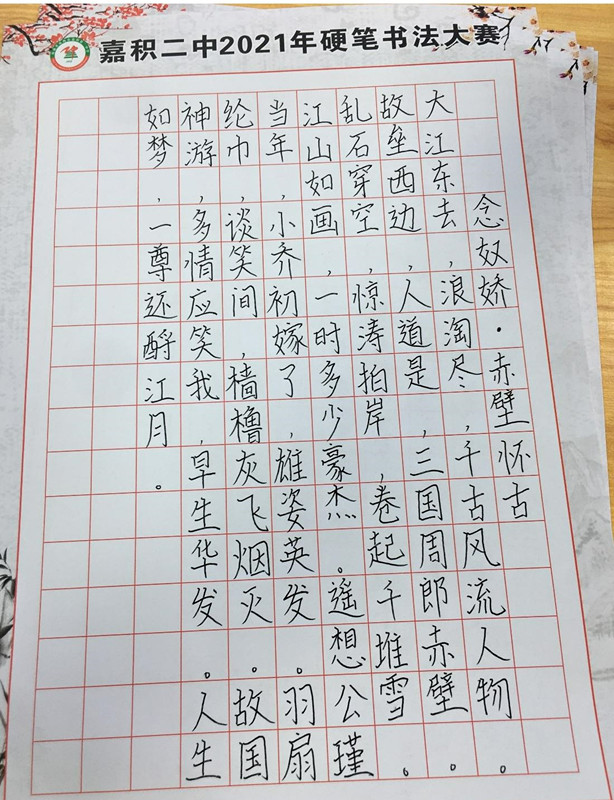 嘉积二中2021年硬笔书法大赛
念奴娇·赤壁怀古
大江东去，浪淘尽，千古风流人物。
故垒西边，人道是，三国周郎赤壁。
乱石穿空，惊涛拍岸，卷起千堆雪。
江山如画，一时多少豪杰。遥想公瑾
当年，小乔初嫁了，雄姿英发。羽扇
纶巾，谈笑间，樯橹灰飞烟灭。故国
神游，多情应笑我，早生华发。人生
如梦，一尊还酹江月。